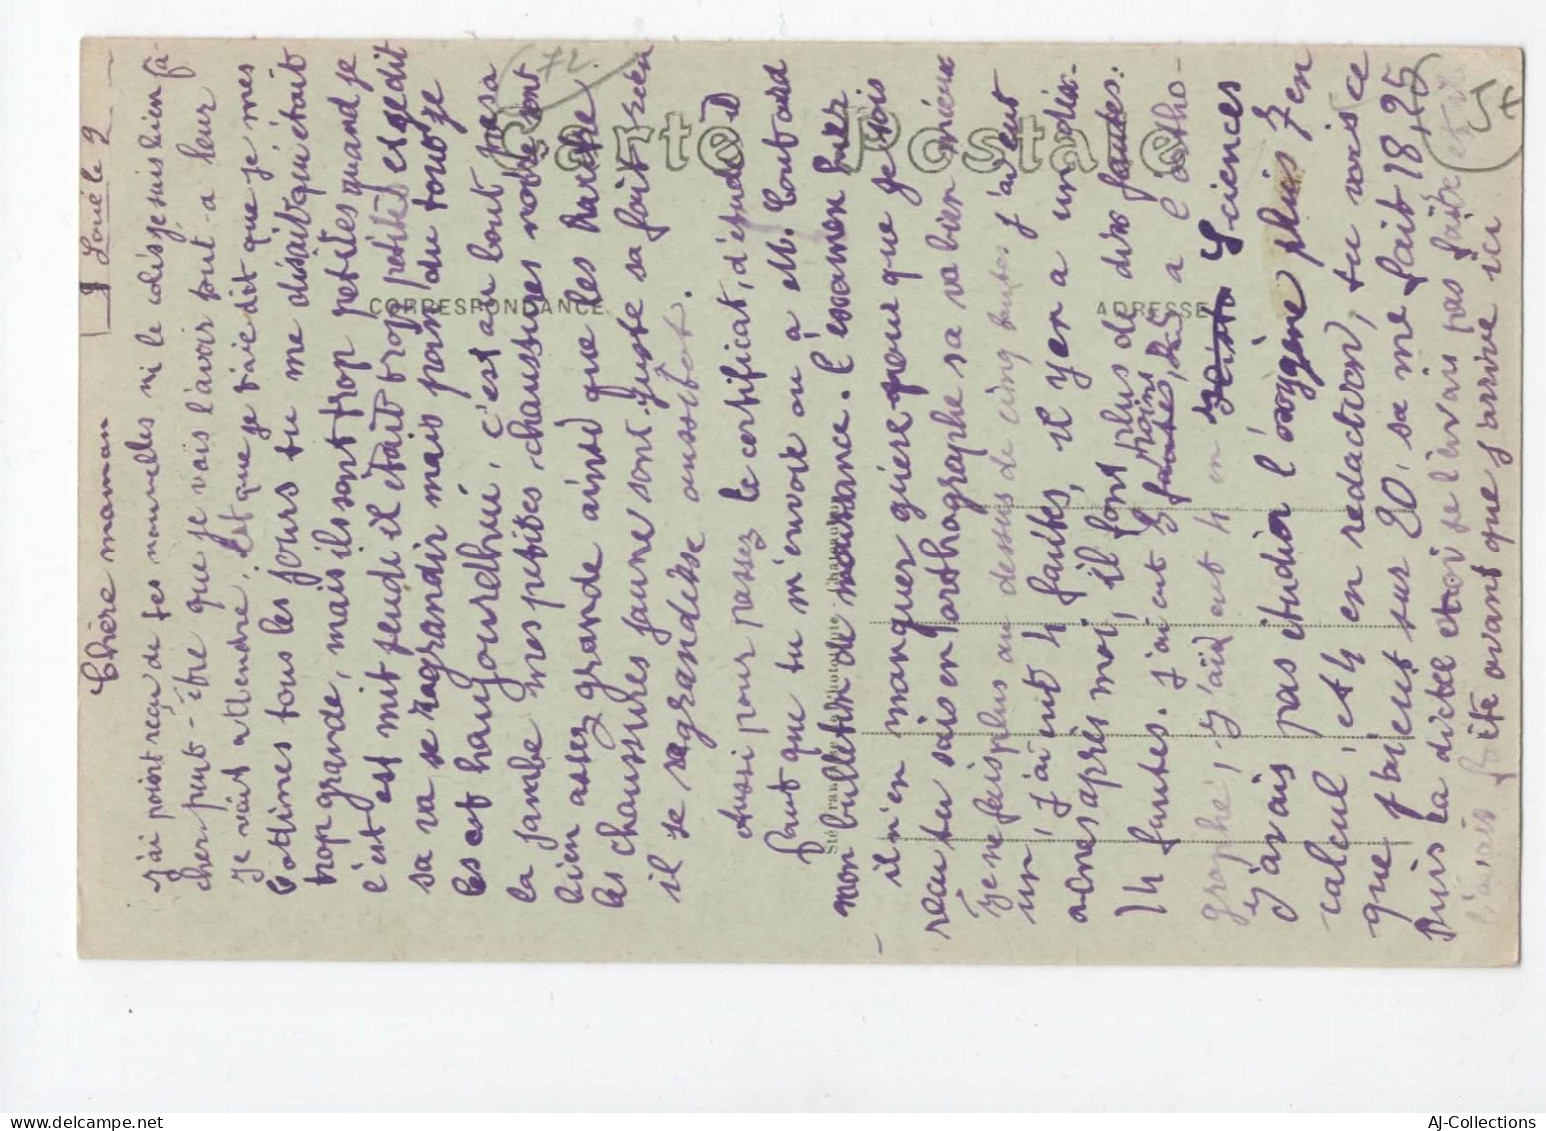 Loué le 2
Chère maman
j'ai point reçu de tes nouvelles ni le colis je suis bien fâ-
cher peut-être que je vais l'avoir tout-a leur
je vait attendre. Est que je t'avie dit que je mes
bottines tous les jours tu me disait qu'était
trop grande, mais ils sont trop petites quand je
c'est est mit jeudi il était trop petites et je dit
sa va se ragrandir mais point du tout je
les est haujourdhui, c'est au bout pas a
la jambe mes petites chaussures noire sont
bien assez grande ainsi que les autre
les chaussures jaune sont juste sa fait rien
il se ragrandisse aussitôt.
Aussi pour passez le certificat, d'étude il
faut que tu m'envoie ou a M. Coutard
mon bulletin de naissance. l'éxamen hier
il n'en manquer guière pour que je sois
recu tu sais en l'orthographe sa va bien mieux
je ne fais plus au dessus de cinq fautes j'ai eut
un, j'ai eut 4 fautes, il y en a un dix-
aines après moi, il font plus de dix fautes:
14 fautes. j'ai eut 8 fautes, moins a l'ortho-
graphe, j'aie eut 4 en Sciences
j'avais pas étudier l'oxygène puis 7 en
calcul, et 4 en redaction, tu vois ce
que j'ai eut sur 20, sa me fait 18,25
Puis la dictée et
fa ite avant que j'arrive ici
Carte Postale
CORRESPONDANCE
ADRESSE
72.
5€
AJ-Collections